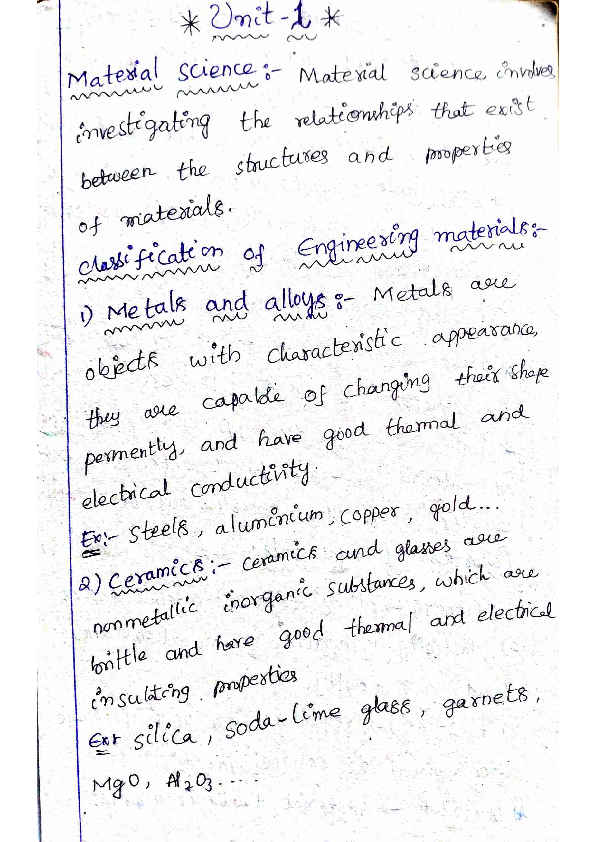 * Unit-1 *
Material Science:- Material science involves
investigating the relationships that exist
between the structures and properties
of materials.
Classification of Engineering materials:-
1) Metals and alloys:- Metals are
objects with characteristic appearance,
they are capable of changing their shape
permently, and have good thermal and
electrical conductivity.
Ex:- Steels, aluminium, copper, gold...
2) Ceramics:- ceramics and glasses are
nonmetallic inorganic substances, which are
brittle and have good thermal and electrical
insulating properties
Ex:- silica, soda-lime glass, garnets,
MgO, Al2O3....